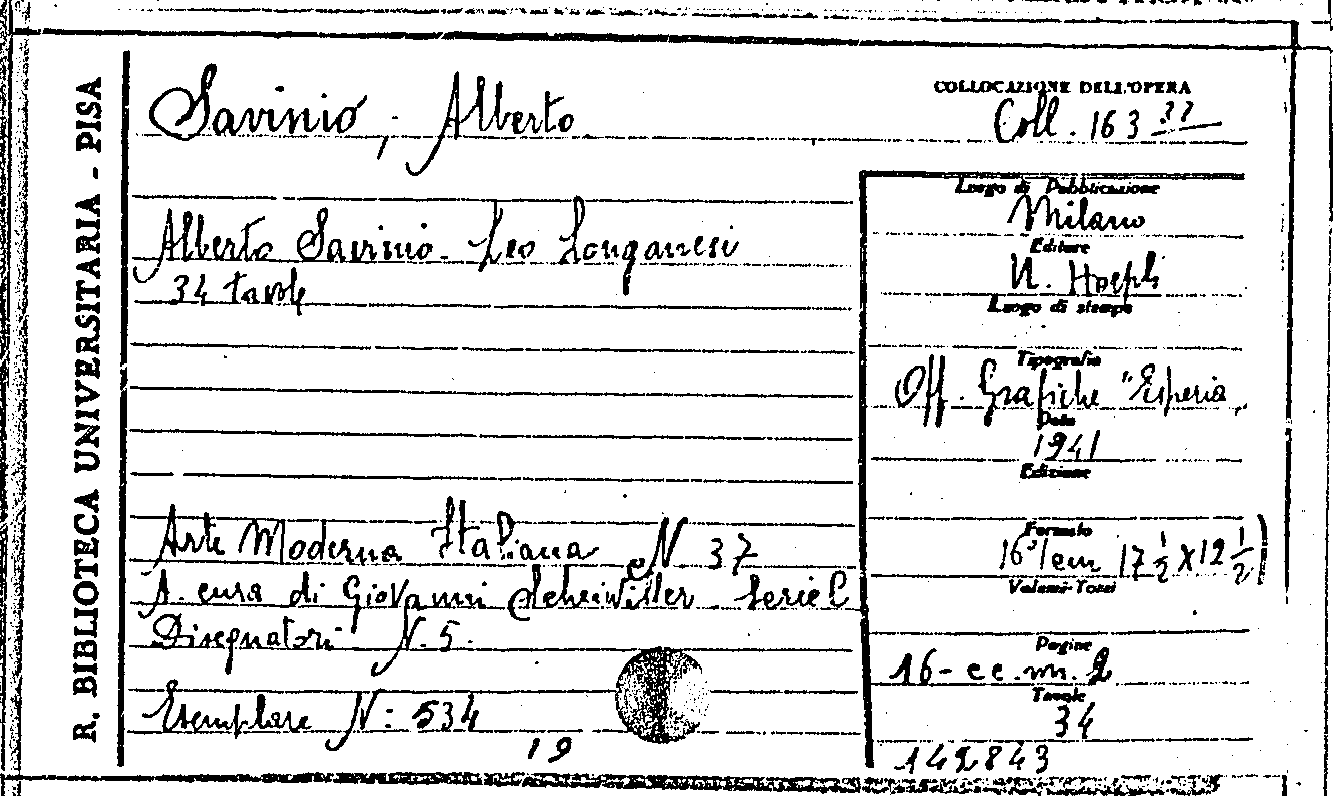 R. BIBLIOTECA UNIVERSITARIA - PISA
Savinio, Alberto
COLLOCAZIONE DELL'OPERA
Coll. 163
Alberto Savinio - Leo Longanesi
34 tavole
Luogo di Pubblicazione
Milano
Editore
U. Hoepli
Luogo di stampa
Tipografia
Off. Grafiche "Esperia„
Data
1941
Edizione
Arte Moderna Italiana N. 37
A cura di Giovanni Scheiwiller. Serie C
Disegnatori N. 5.
Esemplare N: 534
19
Formato
16° (cm 17 1/2 x 12 1/2)
Volumi-Tomi
Pagine
16 - cc. nn. 2
Tavole
34